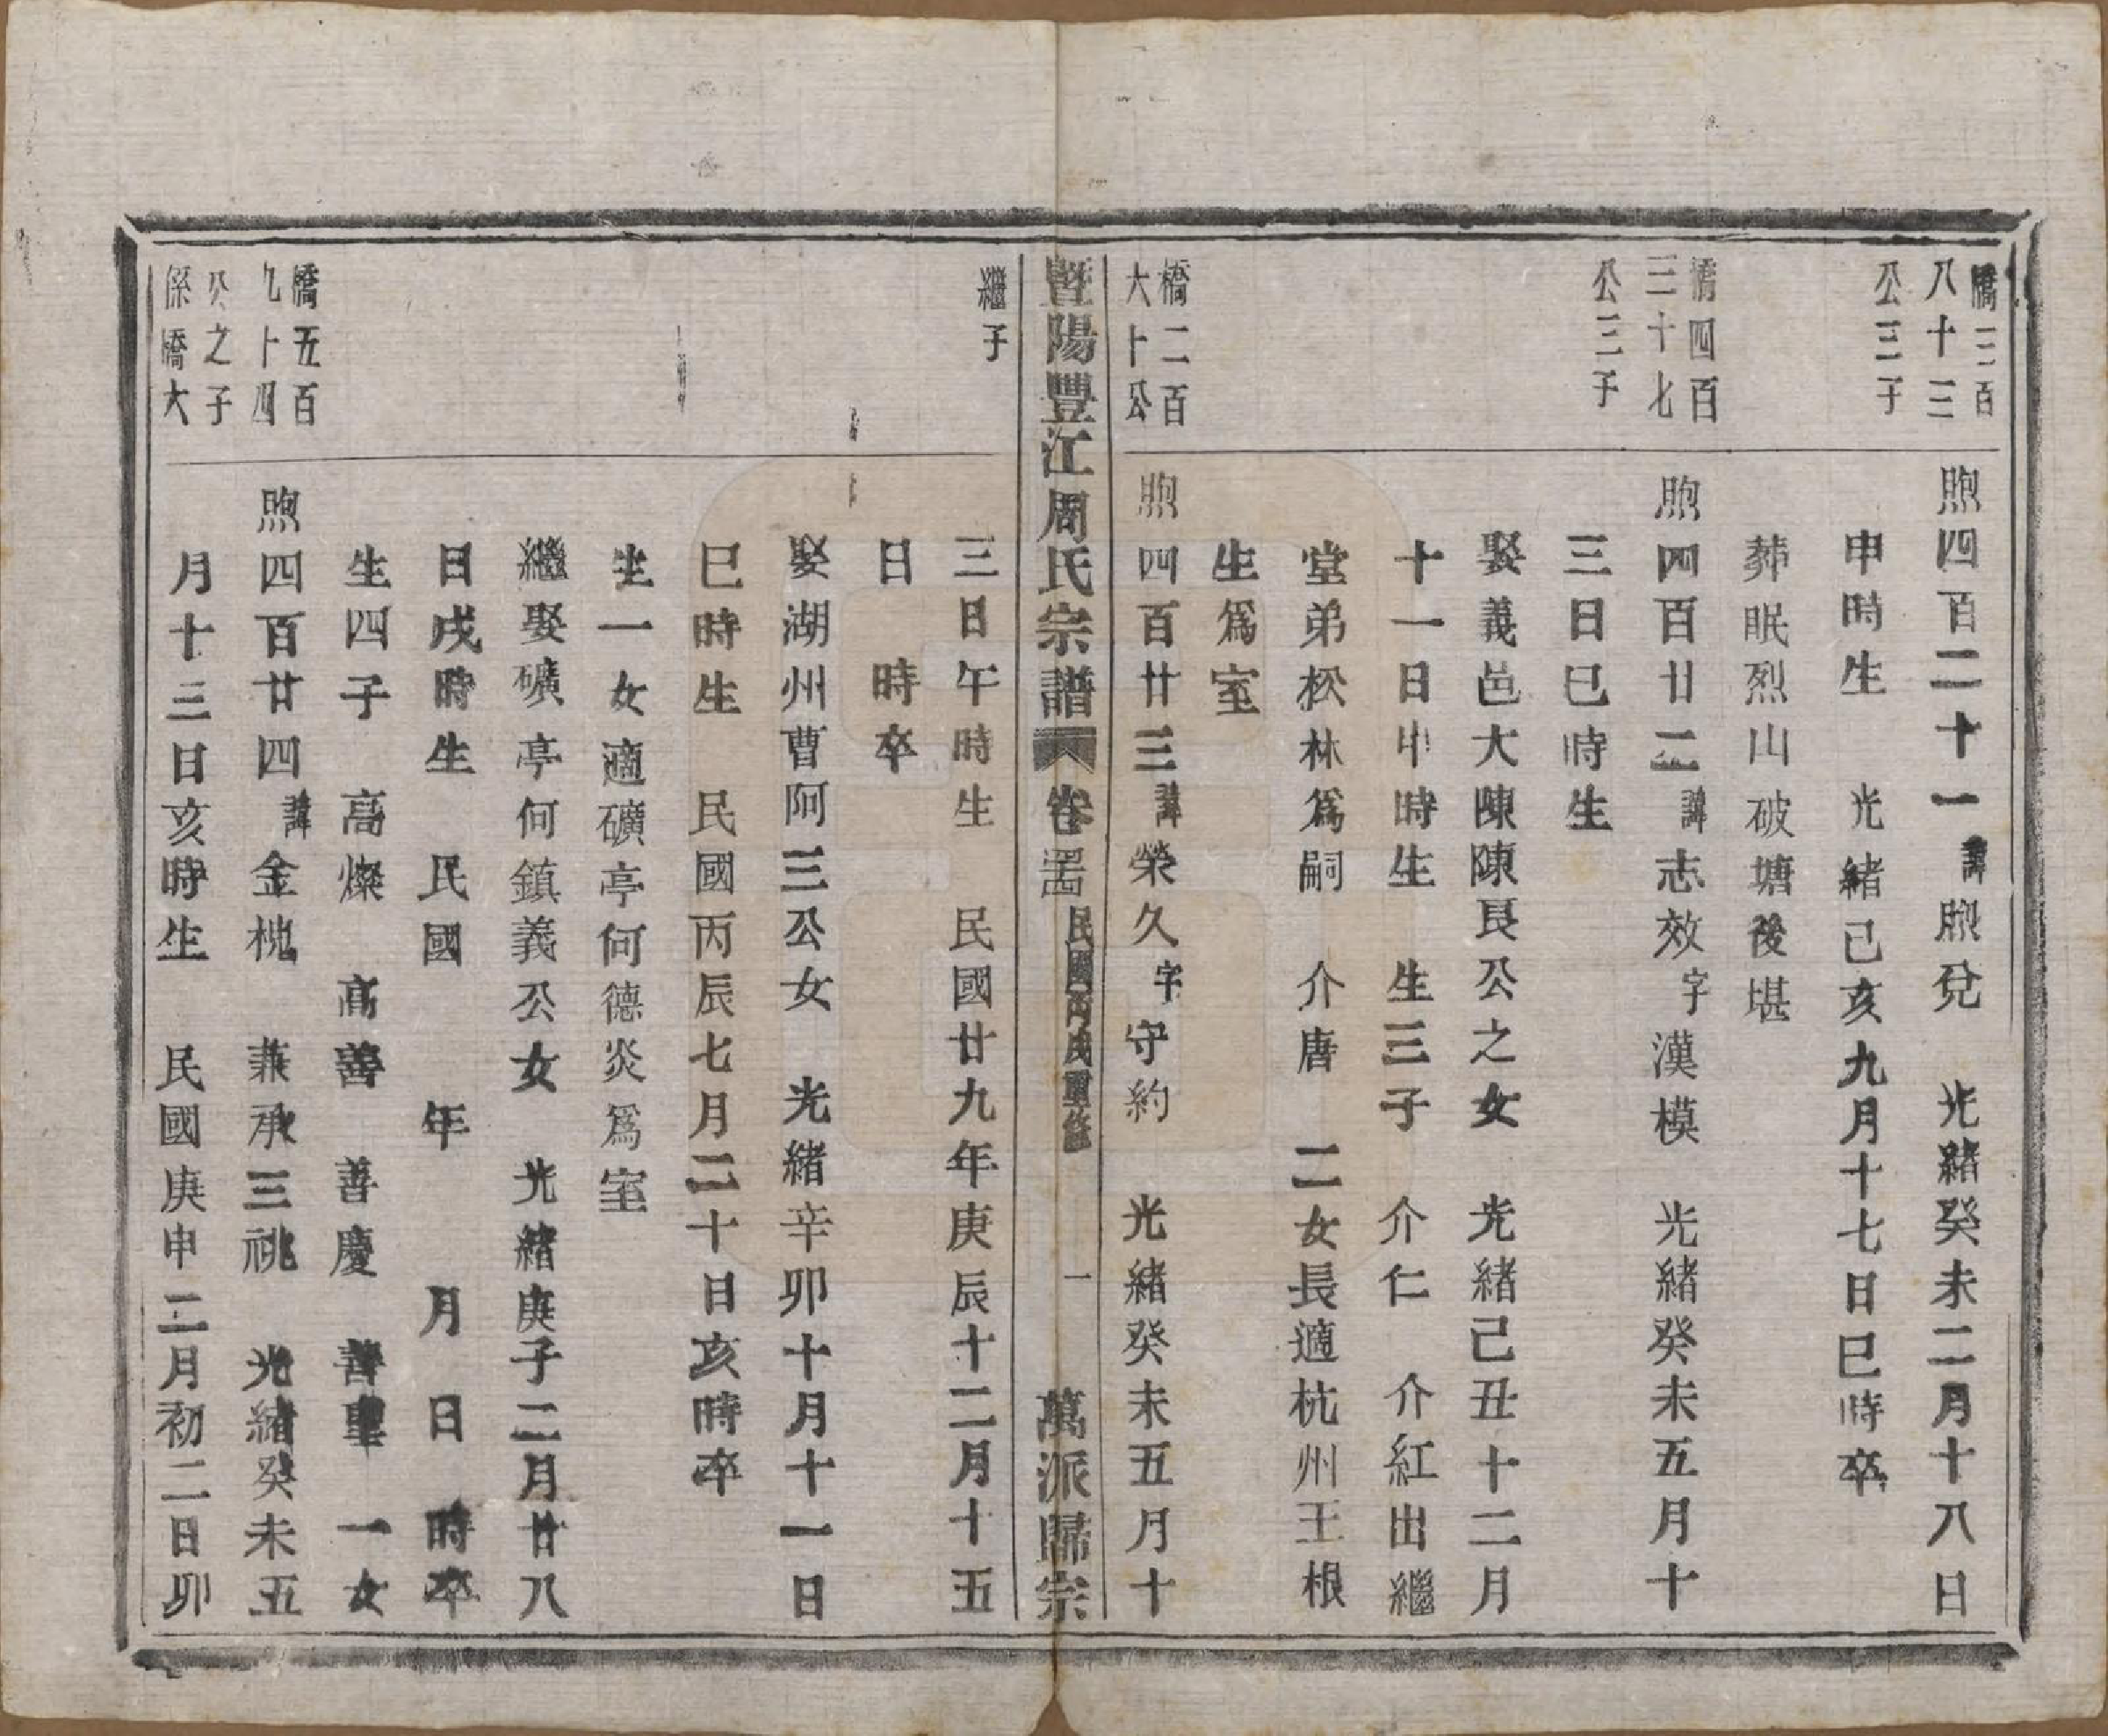 橋三百
八十三
公三子
煦四百二十一諱煦兌　光緒癸未二月十八日
申時生　光緒己亥九月十七日巳時卒
葬眠烈山破塘後堪
橋四百
三十七
公三子
煦四百廿二諱志效字漢模　光緒癸未五月十
三日巳時生
娶義邑大陳陳艮公之女　光緒己丑十二月
十一日申時生　生三子　介仁　介紅出繼
堂弟松林爲嗣　介唐　二女長適杭州王根
生爲室
橋二百
六十公
煦四百廿三諱榮久字守約　光緒癸未五月十
暨陽豐江周氏宗譜　卷　民國丙戌重修　一　萬派歸宗
繼子
三日午時生　民國廿九年庚辰十二月十五
日　時卒
娶湖州曹阿三公女　光緒辛卯十月十一日
巳時生　民國丙辰七月二十日亥時卒
生一女適礦亭何德炎爲室
繼娶礦亭何鎮義公女　光緒庚子二月廿八
日戌時生　民國　年　月　日　時卒
生四子　高燦　高善　善慶　善聖　一女
橋五百
九十四
公之子
係橋大
煦四百廿四諱金槐　兼承三祧　光緒癸未五
月十三日亥時生　民國庚申二月初二日卯